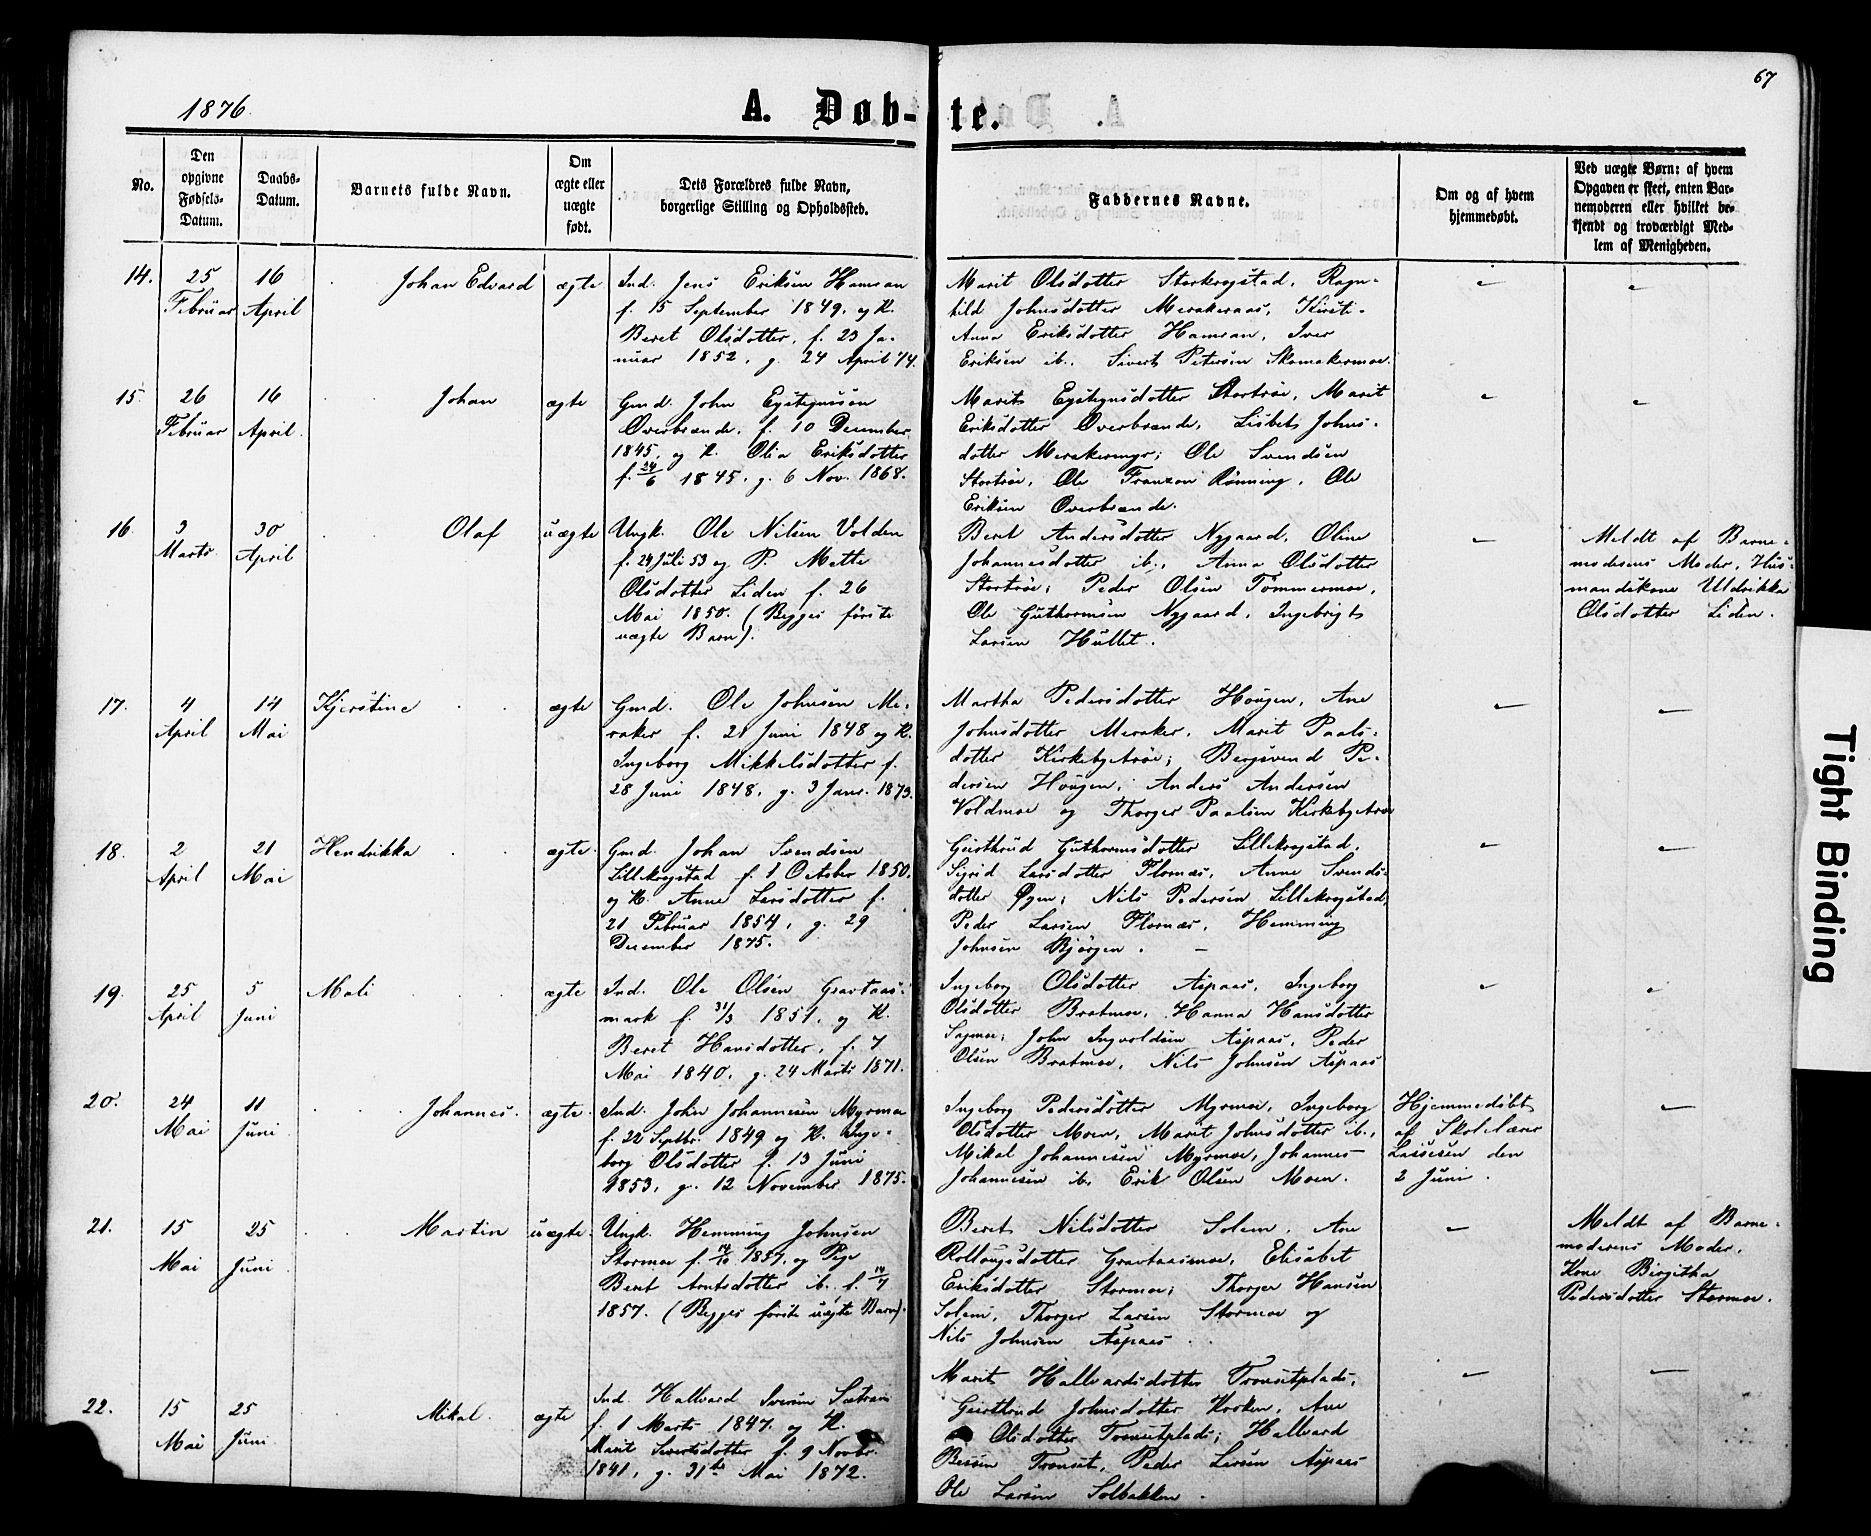 67
1876.
A. Døb-te.
No.
Den opgivne Fødsels-Datum.
Daabs-Datum.
Barnets fulde Navn.
Om ægte eller uægte født.
Dets Forældres fulde Navn, borgerlige Stilling og Opholdssted.
Faddernes Navne.
Om og af hvem hjemmedøbt.
Ved uægte Børn: af hvem Opgaven er skeet, enten Barnemoderen eller hvilket bekjendt og troværdigt Medlem af Menigheden.
14. 25 Februar 16 April Johan Edvard ægte
Ind. Jens Eriksen Hamran
f. 15 September 1849, og K.
Beret Olsdotter, f. 23 Ja-
nuar 1852, g. 24 April 74.
Marit Olsdotter Storkrogstad, Ragn-
hild Johnsdotter Merakeraas, Kirsti-
Anna Eriksdotter Hamran, Iver
Eriksen ib., Sivert Petersen Skomakermoe.
15. 26 Februar 16 April Johan ægte
Gmd. John Eystegnssen
Overbrænde, f. 10 December
1845, og K. Olia Eriksdotter
f. 24/6 1845, g. 6 Nov. 1868.
Marit Eystegnsdotter Stortrøe, Marit
Eriksdotter Overbrænde, Lisbet Johns-
dotter Merakermyr; Ole Svendsen
Stortrøe, Ole Franzon Rønning, Ole
Eriksen Overbrænde.
16. 3 Marts 30 April Olaf uægte
Ungk. Ole Nilsen Volden
f. 24 Juli 53 og P. Mette
Olsdotter Liden f. 26
Mai 1850. (Begges første
uægte Barn).
Beret Andersdotter Nygaard, Oline
Johannesdotter ib., Anna Olsdotter
Stortrøe; Peder Olsen Tømmermoe,
Ole Guthormsen Nygaard, Ingebrigt
Larsen Hullet.
Meldt af Barne-
moderens Moder, Hus-
mandskone Uldrikka
Olsdotter Liden.
17. 4 April 14 Mai Kjerstine ægte
Gmd. Ole Johnsen Me-
raker f. 21 Juni 1848 og K.
Ingeborg Mikkelsdotter f.
28 Juni 1848, g. 3 Janr. 1873.
Martha Pedersdotter Hougen, Ane
Johnsdotter Meraker, Marit Paals-
dotter Kirkebytrøe; Bergsvend Pe-
dersen Hougen, Anders Andersen
Voldmoe og Thorger Paalsen Kirkebytrøe
18. 2 April 21 Mai Hendrikka ægte.
Gmd. Johan Svendsen
Lillekrogstad f. 1 October 1850.
og K. Anne Larsdotter f.
21 Februar 1854, g. 29
December 1875.
Gurthrud Guthormsdotter Lillekrogstad,
Sigrid Larsdotter Flornæs, Anne Svends-
dotter Øyen; Nils Pedersen Lillekrogstad,
Peder Larsen Flornæs, Hemming
Johnsen Bjørgen.
19. 25 April 5 Juni Mali ægte
Ind. Ole Olsen Gravtaas-
mark f. 31/3 1851, og K.
Beret Hansdotter, f. 7
Mai 1840, g. 24 Marts 1871.
Ingeborg Olsdotter Aspaas, Ingeborg
Olsdotter Bratmoe, Hanna Hansdotter
Sagmoe; John Ingvoldsen Aspaas, Peder
Olsen Bratmoe, Nils Johnsen Aspaas
20. 24 Mai 11 Juni Johannes. ægte.
Ind. John Johannesen Myrmoe
f. 22 Septbr. 1849 og K. Inge-
borg Olsdotter f. 13 Juni
1853, g. 12 November 1875.
Ingeborg Pedersdotter Myrmoe, Ingeborg
Olsdotter Moen, Marit Johnsdotter ib.,
Mikal Johannesen Myrmoe, Johannes
Johannesen ib, Erik Olsen Moen.
Hjemmedøbt
af Skolelærer
Lassesen den
2 Juni.
21. 15 Mai 25 Juni Martin uægte.
Ungk. Hemming Johnsen
Stormoe f. 14/10 1857, og Pige
Beret Arntsdotter ib, f. 14/7
1857. (Begges første uægte Barn).
Beret Nilsdotter Solem, Ane
Rollougsdotter Gravtaasmoe, Elisabet
Eriksdotter Stormoe; Thorger Hansen
Solem, Thorger Larsen Stormoe og
Nils Johnsen Aspaas.
Meldt af Barne-
moderens Moder,
Kone Birgitha
Pedersdotter Stormoe.
22. 15 Mai 25 Juni Mikal. ægte
Ind. Hallvard Iversen Sætran
f. 1 Marts 1847, og K.
Marit Sivertsdotter f. 9 Novbr.
1841, g. 31te Mai 1872.
Marit Hallvardsdotter Tronsetplads,
Geirtrud Johnsdotter Krøken, Ane
Olsdotter Tronsetplads; Hallvard
Bersen Tronset, Peder Larsen Aspaas
Ole Larsen Solbakken.
Tight Binding